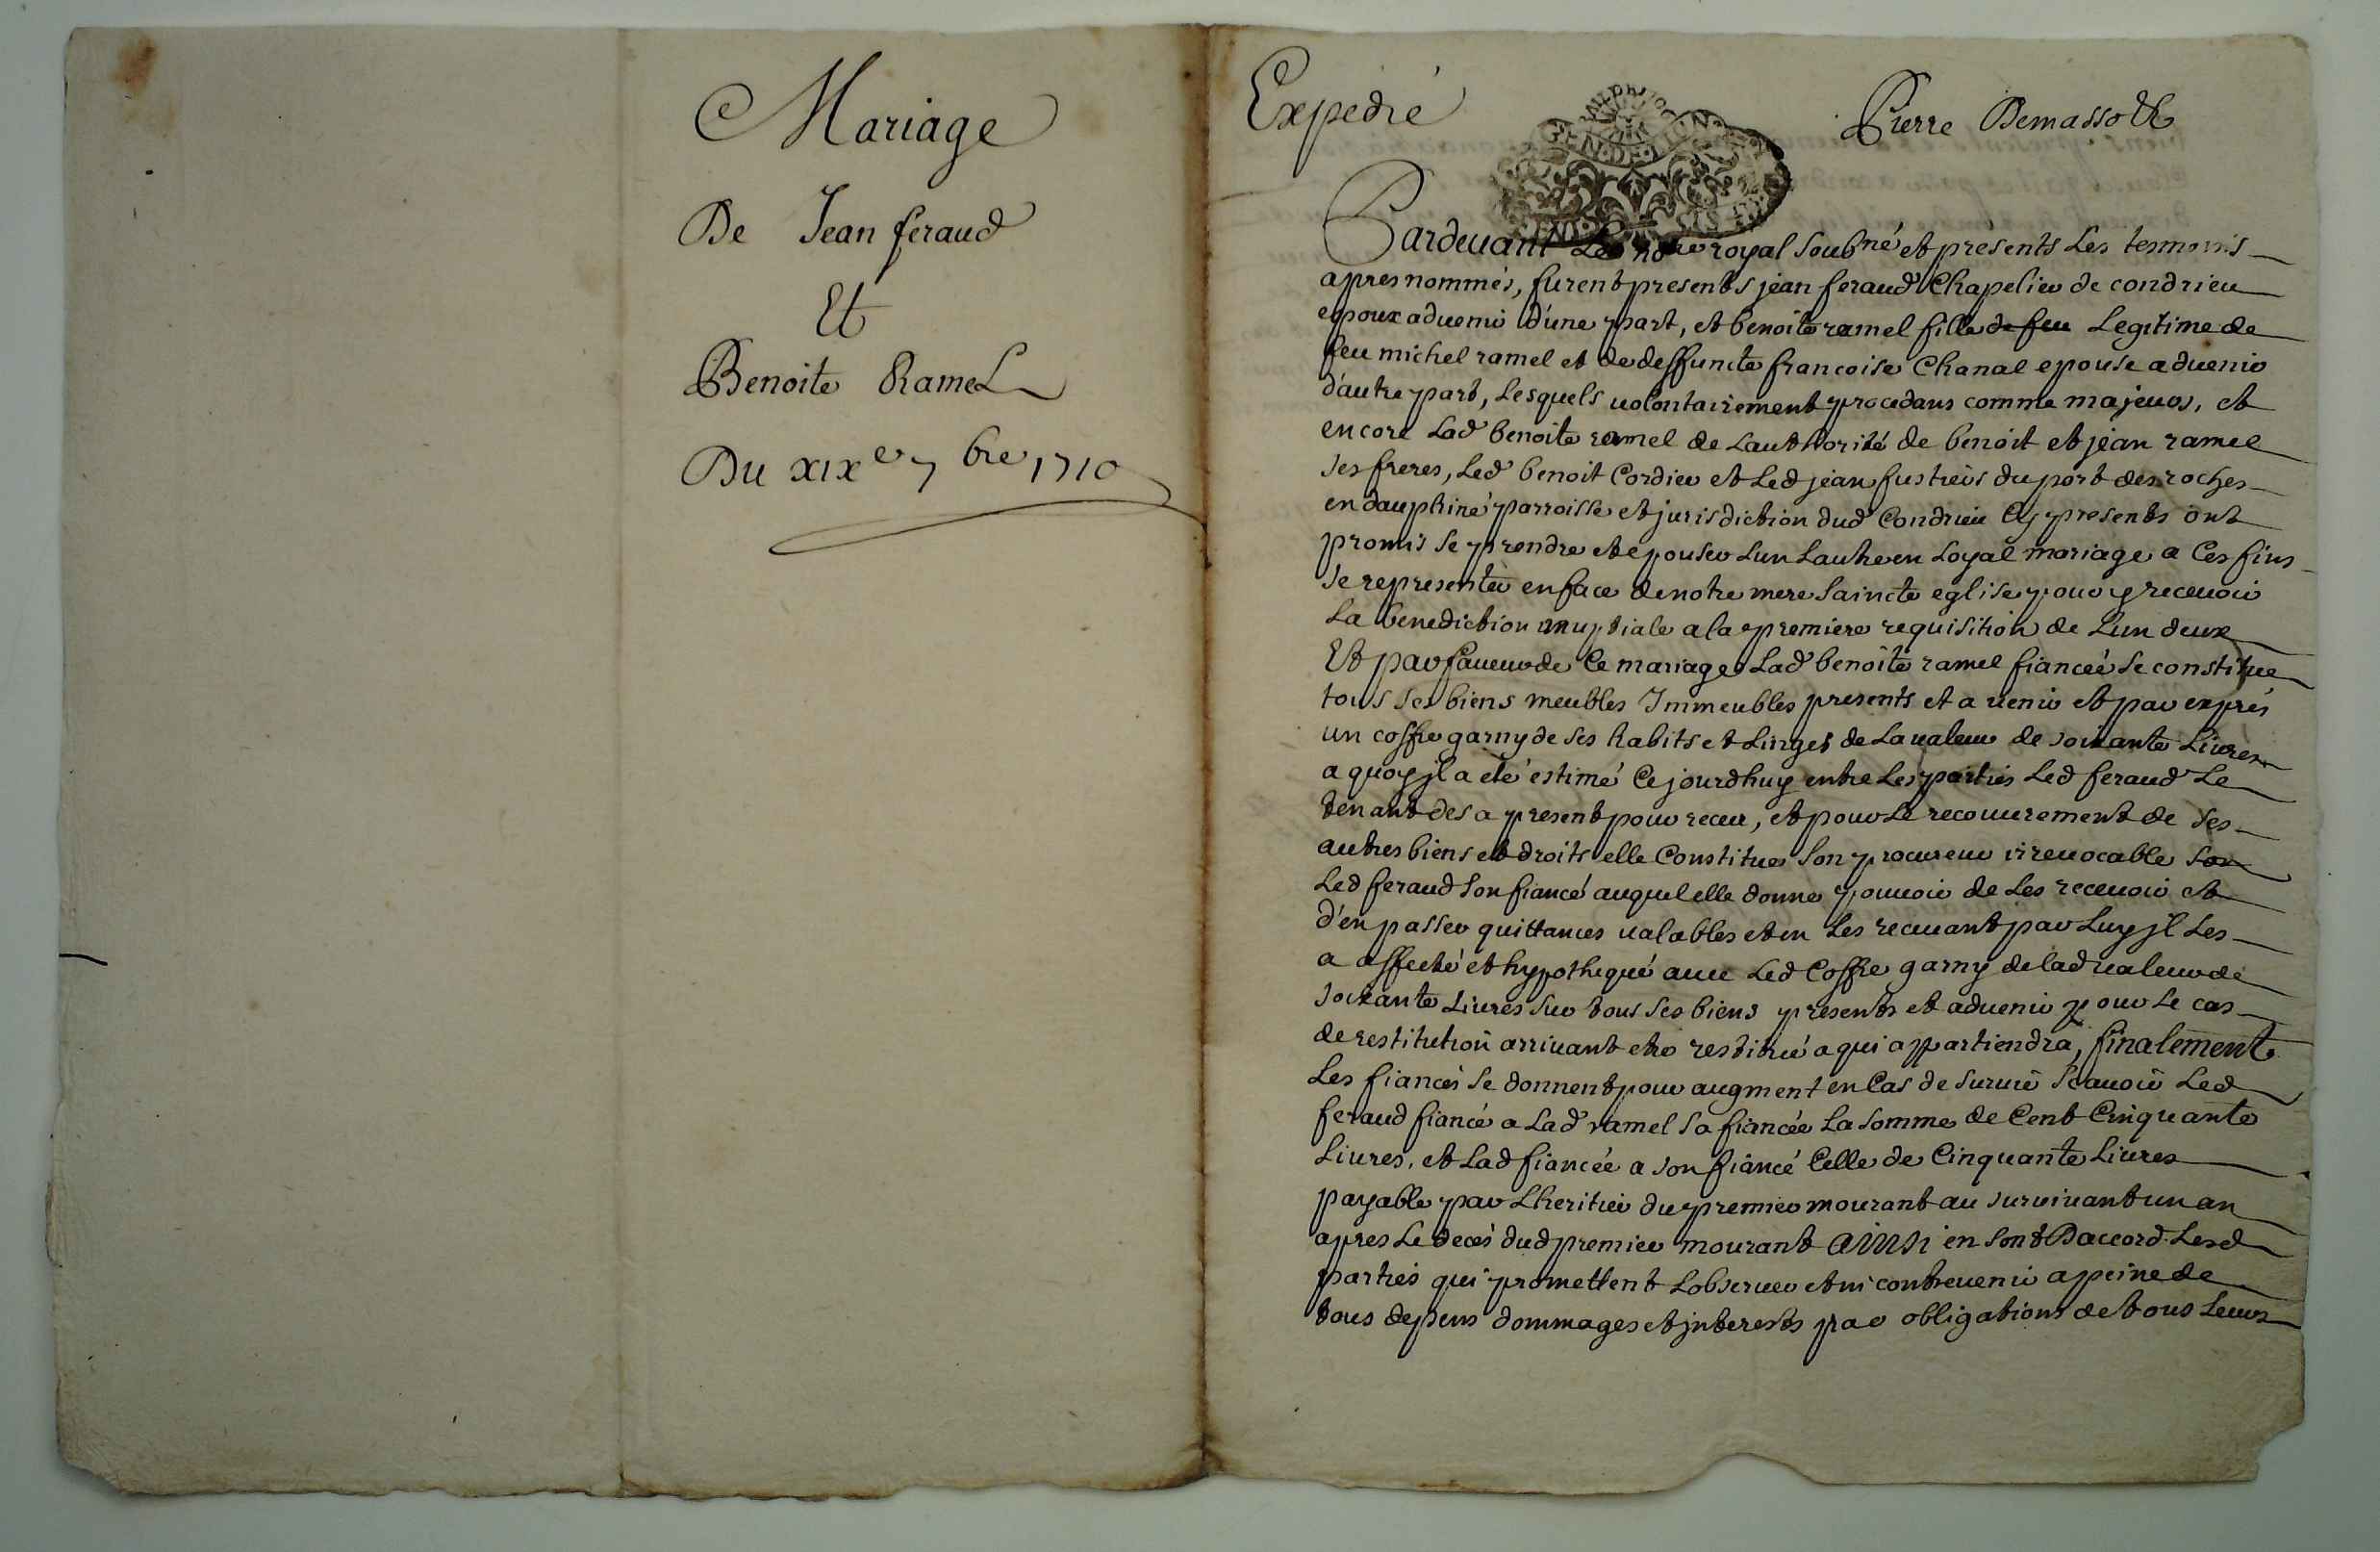 Mariage
De Jean feraud
Et
Benoite Ramel
Du XIXe 7bre 1710
Expedié
Pierre Demasso
Pardeuant Le nore royal soubné et présents Les tesmoins
apres nommés, furent presents jean feraud Chapelier de condrieu
epoux aduenir d'une part, et benoite ramel fille de feu Legitime de
feu michel ramel et de deffuncte francoise Chanal epouse aduenir
d'autre part, Lesquels uolontairement procedans comme majeurs, et
encore Lad benoite ramel de Lauthorité de benoit et jean ramel
ses freres, Led benoit Cordier et Led jean fustier du port des roches
en dauphiné parroisse et jurisdiction dud Condrieu Cy presents ont
promis se prendre et epouser Lun Lautre en Loyal mariage a Ces fins
se representer en face de notre mere Saincte eglise pour y receuoir
La benediction nuptiale a la premiere requisition de Lun deux
Et par faueur de Ce mariage Lad benoite ramel fianceé se constitue
tous ses biens meubles Immeubles presents et a uenir et par exprés
un coffre garny de ses habits et Linges de La ualeur de soixante Liures
a quoy jl a eté estimé Ce jourdhuy entre Les parties Led feraud Le
tenant des a present pour receu, et pour Le recouurement de ses
autres biens et droits elle Constitue son procureur irreuocable son
Led feraud son fiancé auquel elle donne pouuoir de Les receuoir et
d'en passer quittances ualables et en Les receuant par Luy jl Les
a affecté et hypothequé auec Led Coffre garny de lad ualeur de
soixante Liures sur tous ses biens presents et aduenir pour Le cas
de restitution arriuant etre restitué a qui appartiendra, finalement
Les fiancés se donnent pour augment en Cas de suruie scauoir Led
feraud fiancé a Lad ramel sa fiancée La somme de Cent Cinquante
Liures, et Lad fiancée a son fiancé Celle de Cinquante Liures
payable par Lheritier du premier mourant au suruiuant un an
apres Le decés dud premier mourant Ainsi en sont Daccord Lesd
parties qui promettent Lobseruer et ni contreuenir a peine de
tous depens dommages et jnterests par obligations de tous Leurs